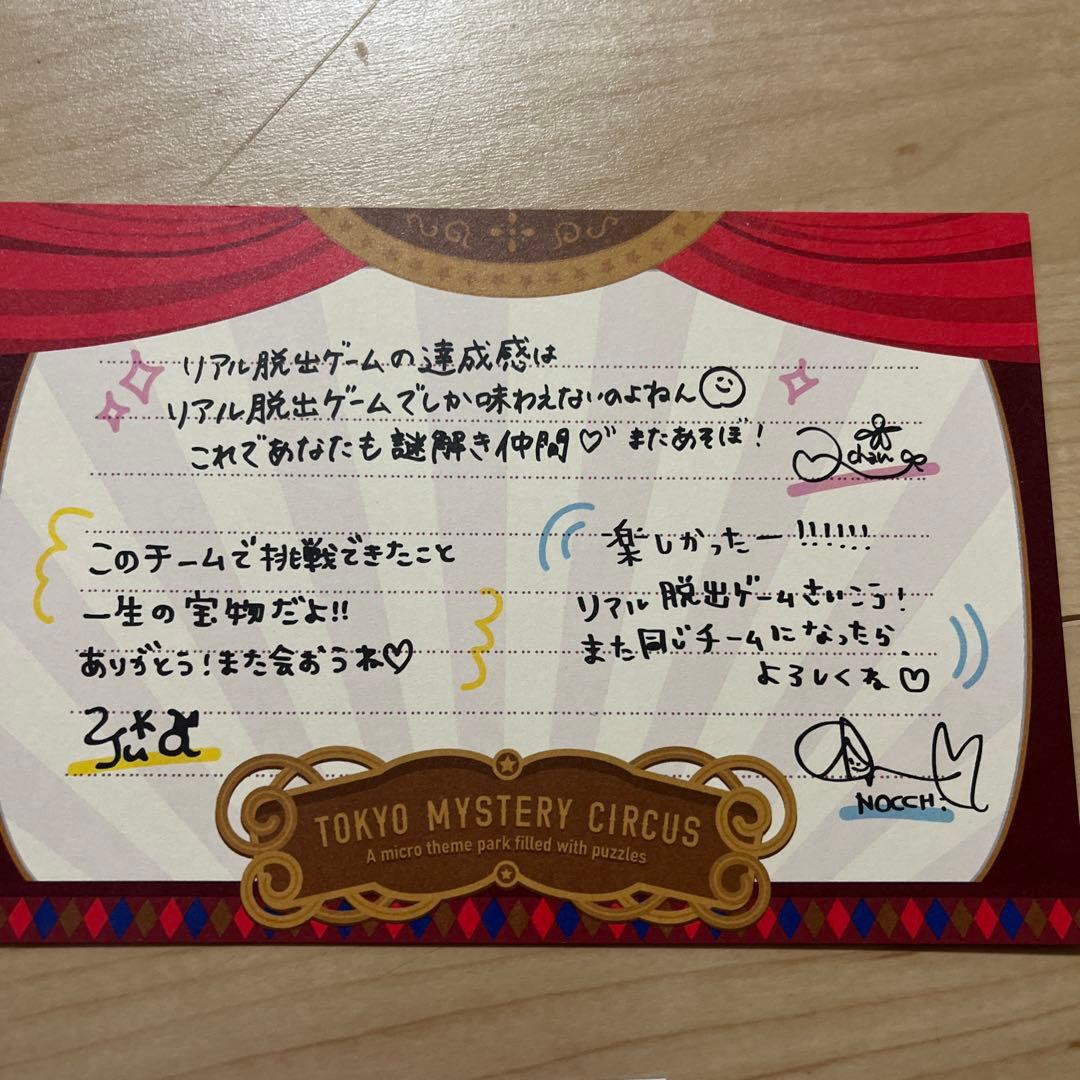 リアル脱出ゲームの達成感は
リアル脱出ゲームでしか味わえないのよねん
これであなたも謎解き仲間♡またあそぼ!
chan
このチームで挑戦できたこと
一生の宝物だよ!!
ありがとう!また会おうね♡
楽しかったー!!!!!!
リアル脱出ゲームさいこう!
また同じチームになったら、
よろしくね♡
NOCCHi
TOKYO MYSTERY CIRCUS
A micro theme park filled with puzzles